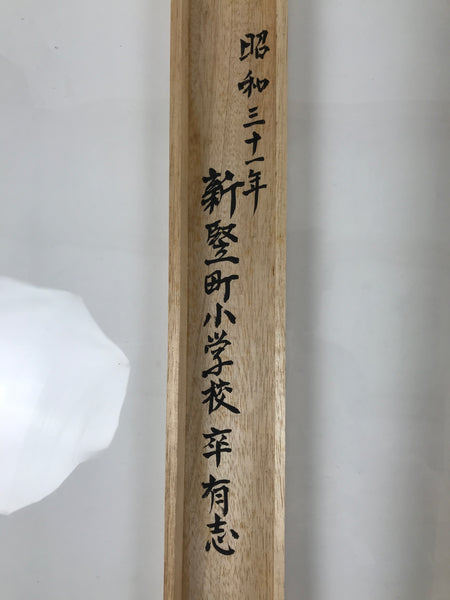 昭和三十一年
新竪町小学校卒有志